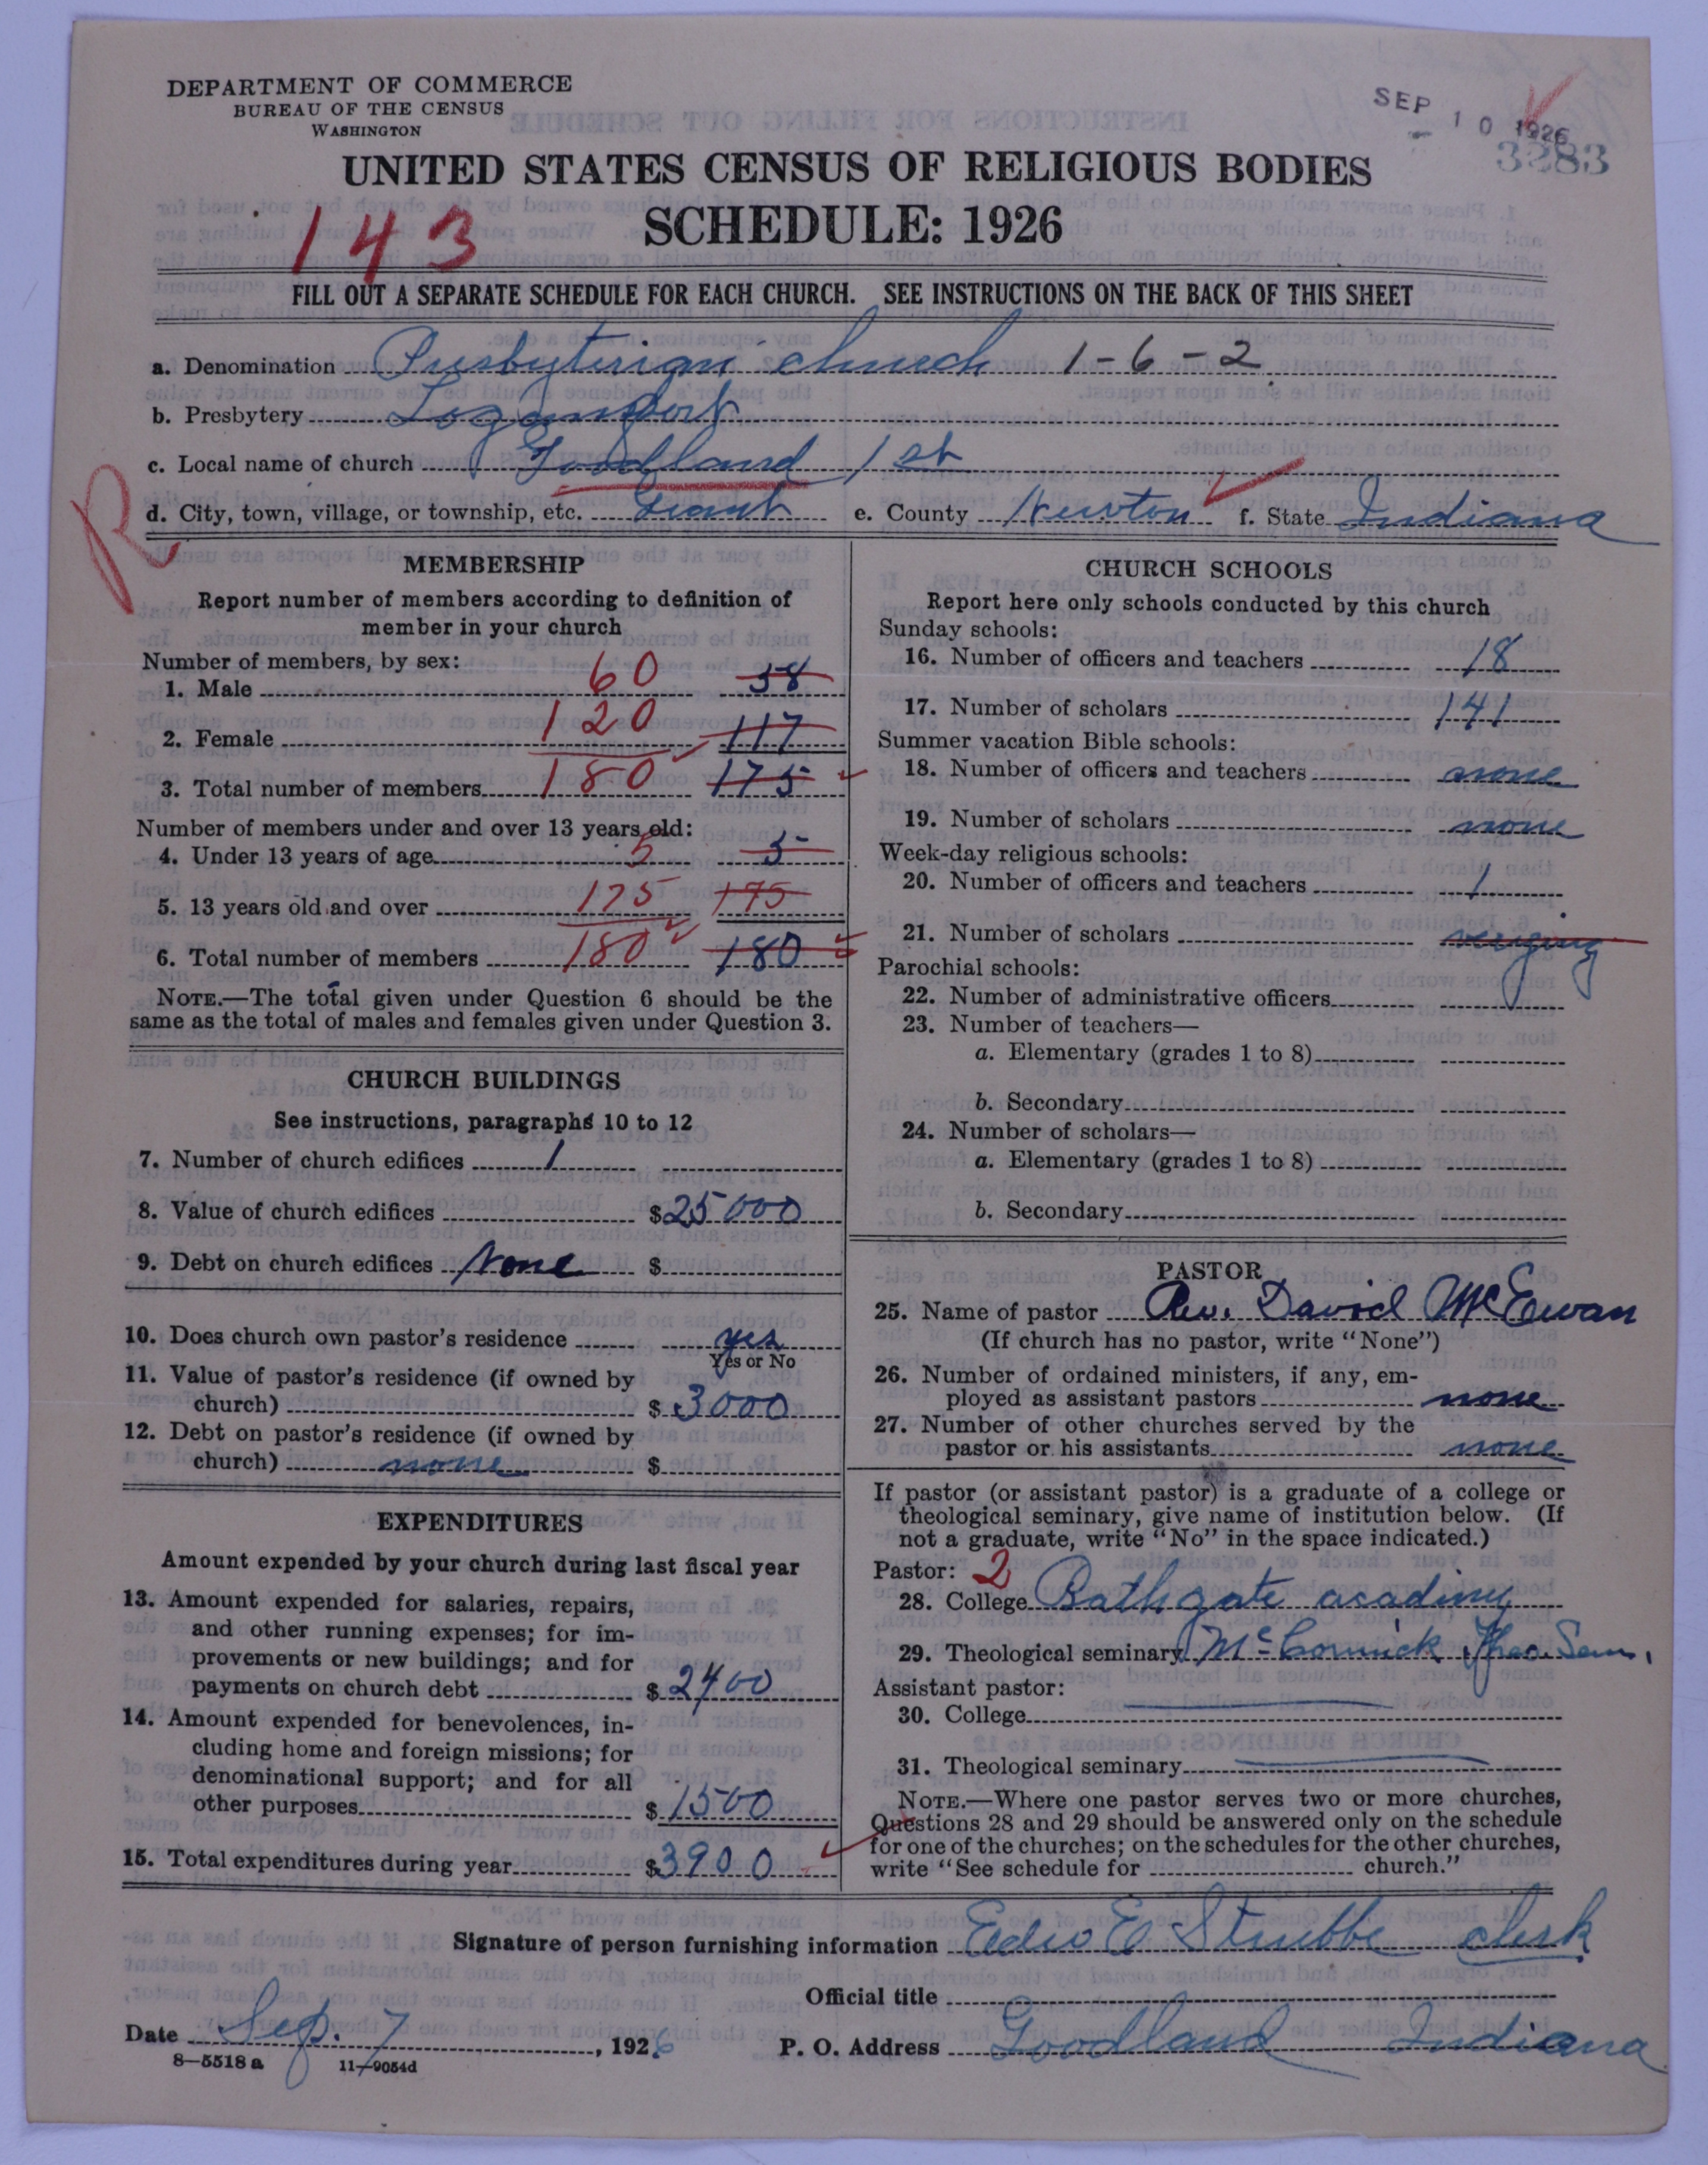 DEPARTMENT OF COMMERCE
BUREAU OF THE CENSUS
WASHINGTON
SEP 10 1926
3283
UNITED STATES CENSUS OF RELIGIOUS BODIES
143
SCHEDULE: 1926
FILL OUT A SEPARATE SCHEDULE FOR EACH CHURCH. SEE INSTRUCTIONS ON THE BACK OF THIS SHEET
a. Denomination Presbyterian church 1-6-2
b. Presbytery Logansport
c. Local name of church Goodland 1st
R
d. City, town, village, or township, etc. Grant e. County Newton f. State Indiana
MEMBERSHIP
Report number of members according to definition of
member in your church
Number of members, by sex:
1. Male 60 58
2. Female 120 117
3. Total number of members 180 175
Number of members under and over 13 years old:
4. Under 13 years of age 5 5
5. 13 years old and over 175 175
6. Total number of members 180 180
NOTE.—The total given under Question 6 should be the
same as the total of males and females given under Question 3.
CHURCH BUILDINGS
See instructions, paragraphs 10 to 12
7. Number of church edifices 1
8. Value of church edifices $25000
9. Debt on church edifices None $
10. Does church own pastor's residence yes
Yes or No
11. Value of pastor's residence (if owned by
church) $3000
12. Debt on pastor's residence (if owned by
church) none $
EXPENDITURES
Amount expended by your church during last fiscal year
13. Amount expended for salaries, repairs,
and other running expenses; for im-
provements or new buildings; and for
payments on church debt $2400
14. Amount expended for benevolences, in-
cluding home and foreign missions; for
denominational support; and for all
other purposes $1500
15. Total expenditures during year $3900
CHURCH SCHOOLS
Report here only schools conducted by this church
Sunday schools:
16. Number of officers and teachers 18
17. Number of scholars 141
Summer vacation Bible schools:
18. Number of officers and teachers none
19. Number of scholars none
Week-day religious schools:
20. Number of officers and teachers 1
21. Number of scholars
Parochial schools:
22. Number of administrative officers
23. Number of teachers—
a. Elementary (grades 1 to 8)
b. Secondary
24. Number of scholars—
a. Elementary (grades 1 to 8)
b. Secondary
PASTOR
25. Name of pastor Rev. David McEwan
(If church has no pastor, write "None")
26. Number of ordained ministers, if any, em-
ployed as assistant pastors none
27. Number of other churches served by the
pastor or his assistants none
If pastor (or assistant pastor) is a graduate of a college or
theological seminary, give name of institution below. (If
not a graduate, write "No" in the space indicated.)
Pastor: 2
28. College Bathgate acadimy
29. Theological seminary McCormick Theo. Sem.
Assistant pastor:
30. College
31. Theological seminary
NOTE.—Where one pastor serves two or more churches,
Questions 28 and 29 should be answered only on the schedule
for one of the churches; on the schedules for the other churches,
write "See schedule for church."
Signature of person furnishing information E Strubbe clerk
Official title
Date Sep. 7, 1926 P. O. Address Goodland Indiana
8—5518a 11—9054d